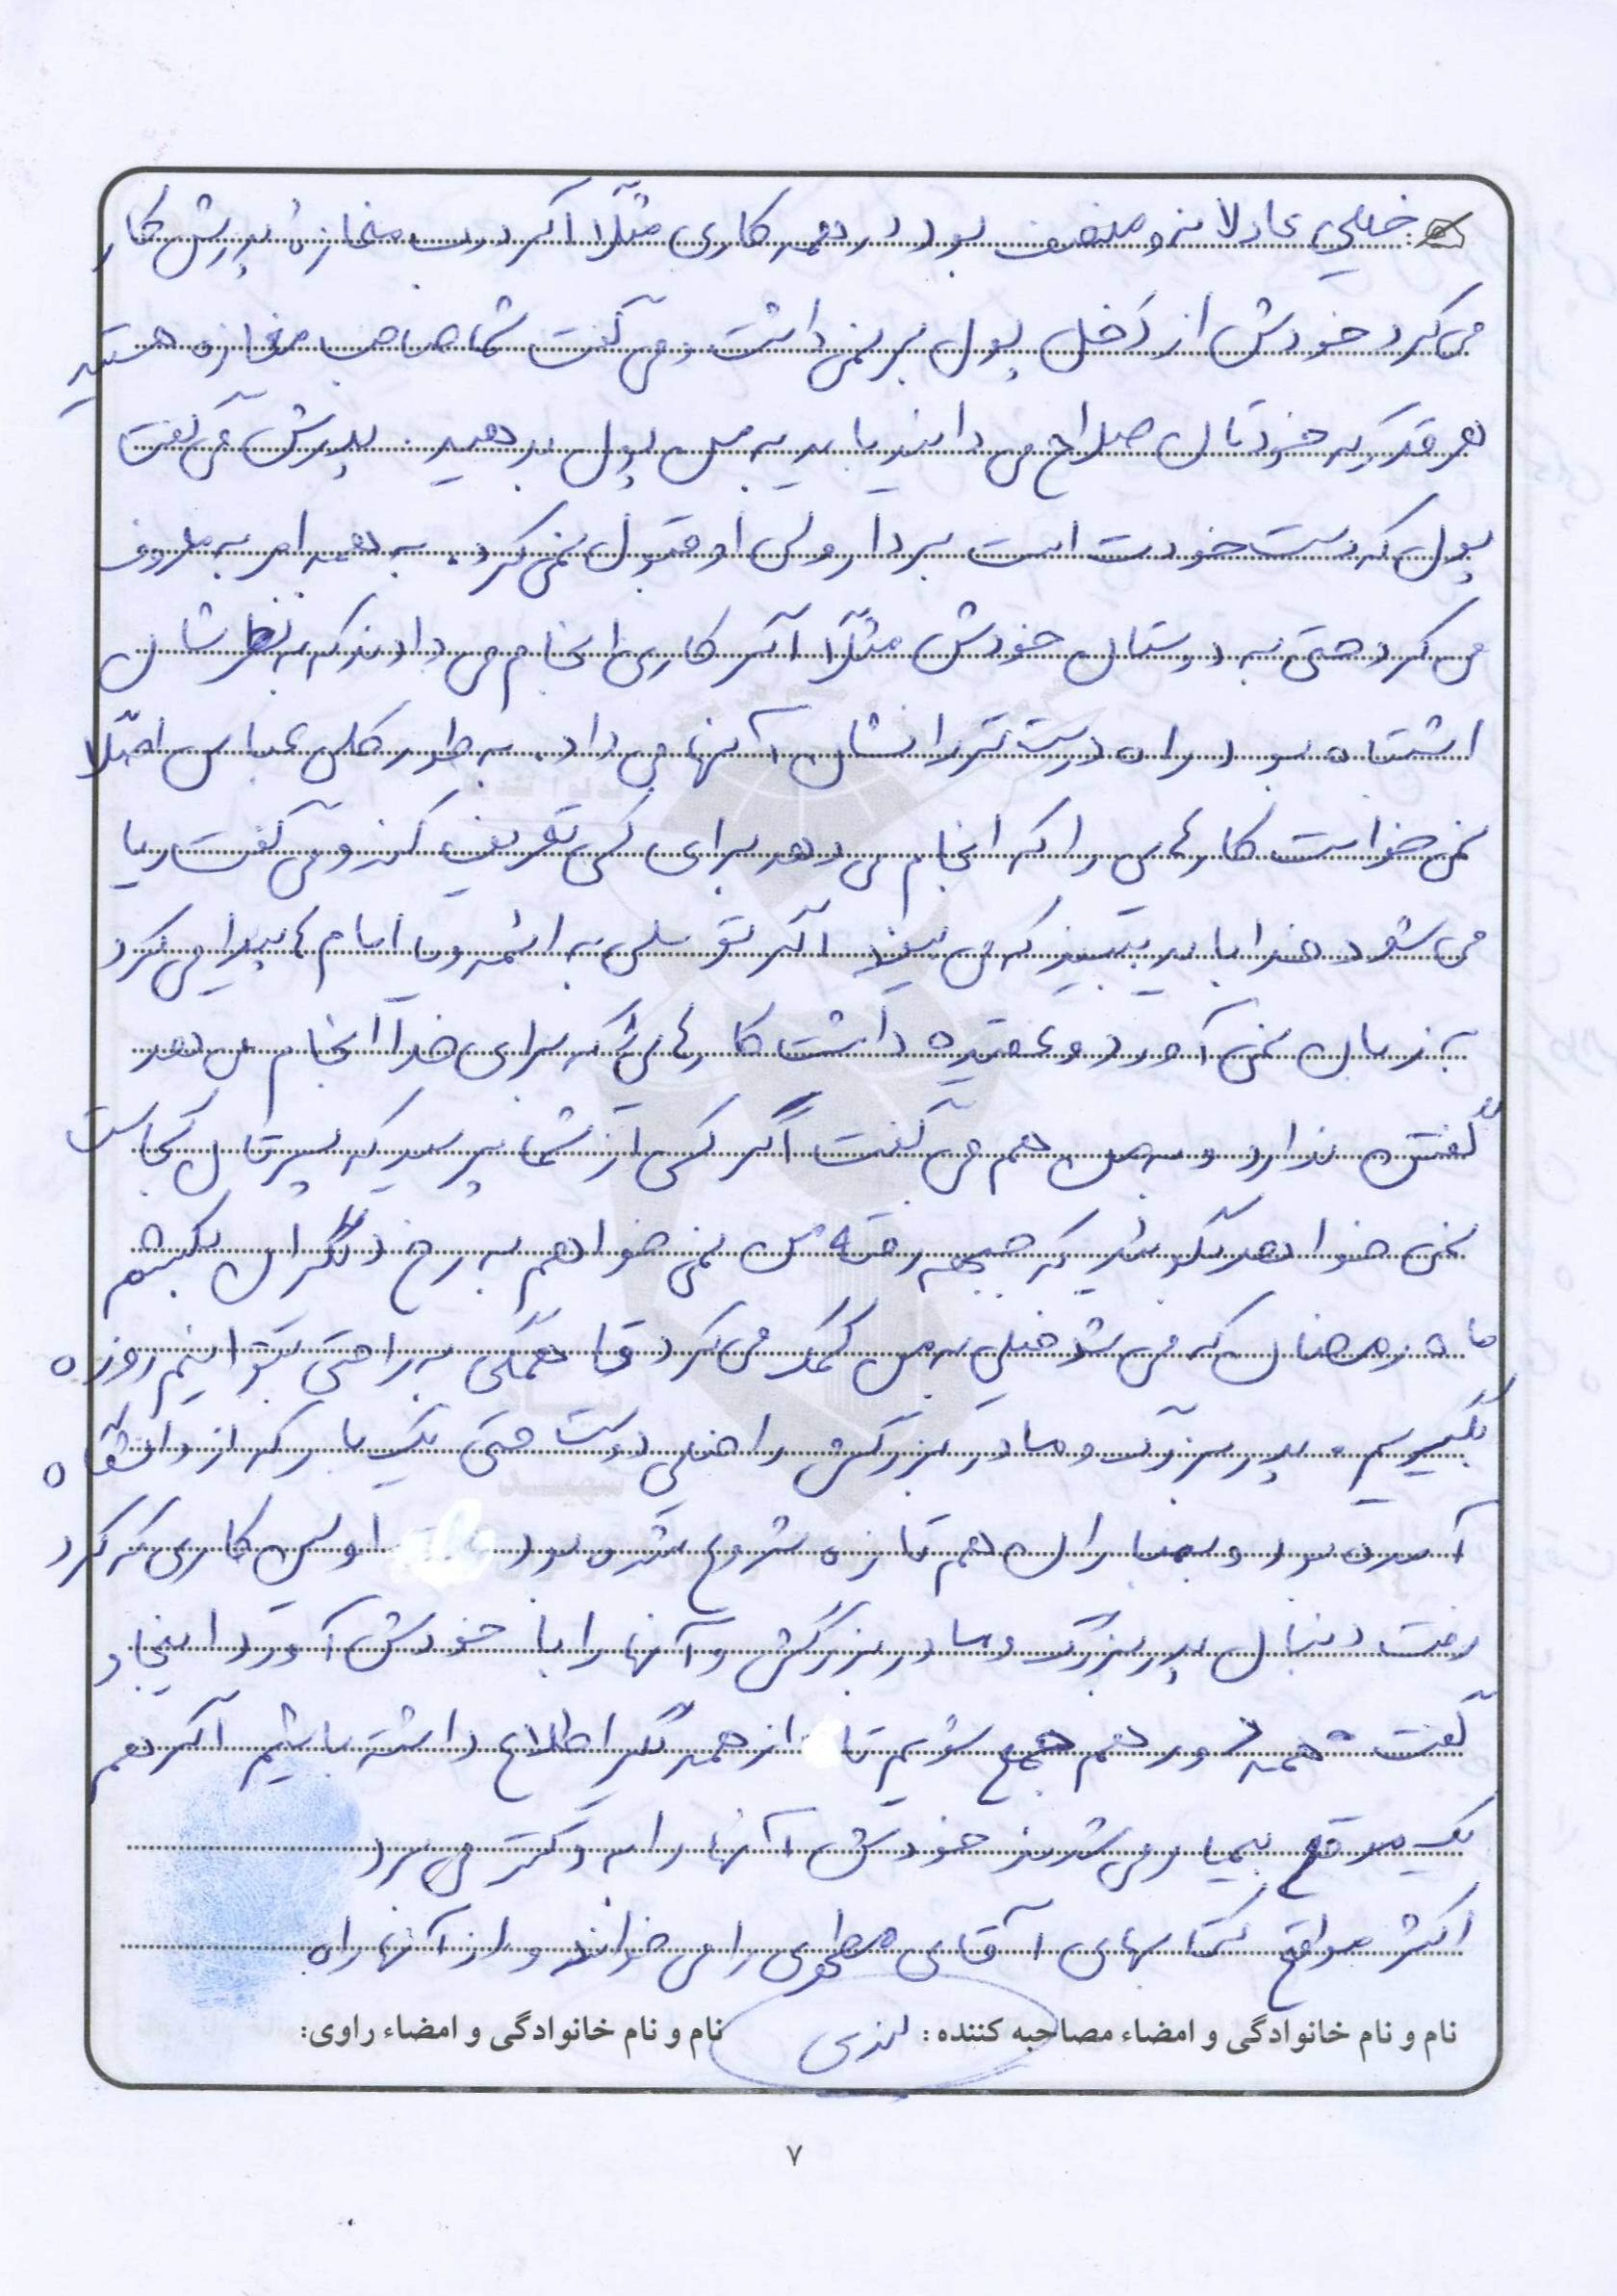 خیلی عادلانه و منصف بود در همه کاری مثلاً اگر درب مغازهٔ پدرش کار
می کرد خودش از دَخل پول بر نمی داشت و می گفت شما صاحب مغازه هستید
هر قدر که خودتان صلاح می دانید باید به من پول بدهید. پدرش می گفت
پول که دست خودت است بردار ولی او قبول نمی کرد. به همه امر به معروف
می کرد حتی به دوستان خودش مثلاً اگر کاری انجام می دادند که به نظرشان
اشتباه بود راه درست تر را نشان آنها می داد. به طور کلی عباس اصلاً
نمی خواست کارهایی را که انجام می دهد برای کسی تعریف کند و می گفت ریا
می شود خدا باید ببیند که می بیند اگر توسلی به ائمه و یا امام ها پیدا می کرد
به زبان نمی آورد و عقیده داشت کارهایی را که برای خدا انجام می دهد
گفتن ندارد و به من هم می گفت اگر کسی از شما پرسید که پسرتان کجاست
نمی خواهد بگویید که جبهه رفته من نمی خواهم به رخ دیگران بکشم
ماه رمضان که می شد خیلی به من کمک می کرد تا همگی به راحتی بتوانیم روزه
بگیریم. پدر بزرگ و مادر بزرگش را خیلی دوست حتی یک بار که از دانشگاه
آمده بود و بمباران هم تازه شروع شده بود اولین کاری که کرد
رفت دنبال پدر بزرگ و مادر بزرگش و آنها را با خودش آورد اینجا و
گفت همه دور هم جمع شویم تا از همدیگر اطلاع داشته باشیم اگر هم
یک موقع بیمار می شدند خودش آنها را به دکتر می برد
اکثر مواقع کتابهای آقای مطهری را می خواند و از آنها راه
نام و نام خانوادگی و امضاء مصاحبه کننده:
نام و نام خانوادگی و امضاء راوی:
۷